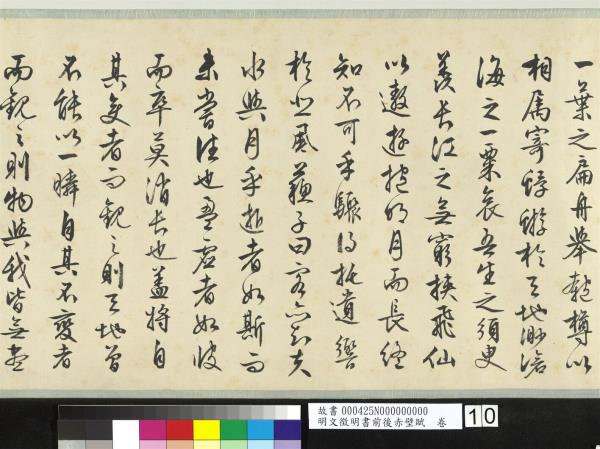 一葉之扁舟舉匏樽以
相屬寄蜉蝣於天地渺滄
海之一粟哀吾生之須臾
羨長江之無窮挾飛仙
以遨遊抱明月而長終
知不可乎驟得托遺響
於悲風蘇子曰客亦知夫
水與月乎逝者如斯而
未嘗往也盈虛者如彼
而卒莫消長也蓋將自
其變者而觀之則天地曾
不能以一瞬自其不變者
而觀之則物與我皆無盡
故書 000425N000000000
明文徵明書前後赤壁賦 卷
10